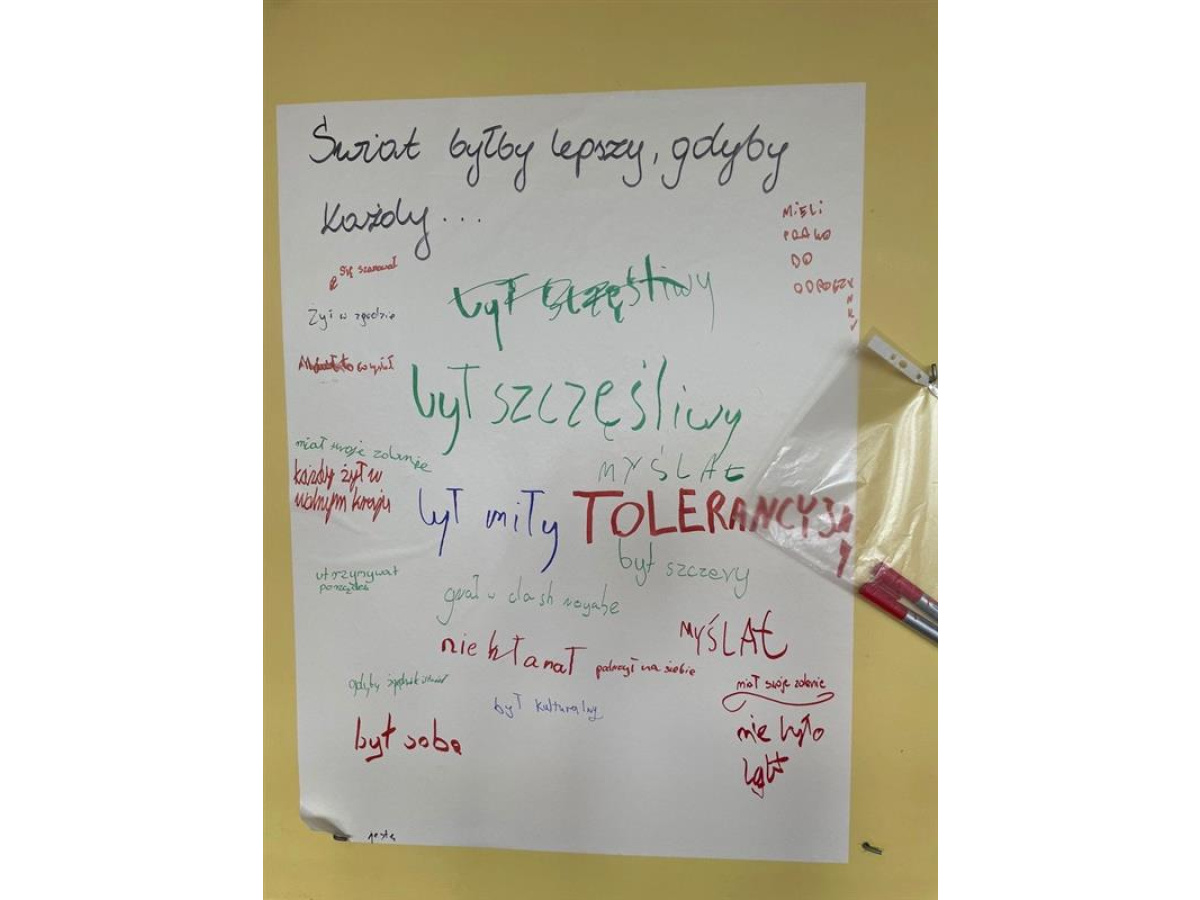 Świat byłby lepszy, gdyby
każdy...
MiELi
PRAWO
DO
ODPOCZYNKU
się szanował
był szczęśliwy
Żył w zgodzie
był szczęśliwy
miał swoje zdanie
MYŚLAŁ
każdy żył w
wolnym kraju
był miły
TOLERANCYJNY
był szczery
utrzymywał
porządek
grał w clash royale
nie kłamał
patrzył na siebie
MYŚLAŁ
gdyby
miał swoje zdanie
był kulturalny
nie było
lgbt
był sobą